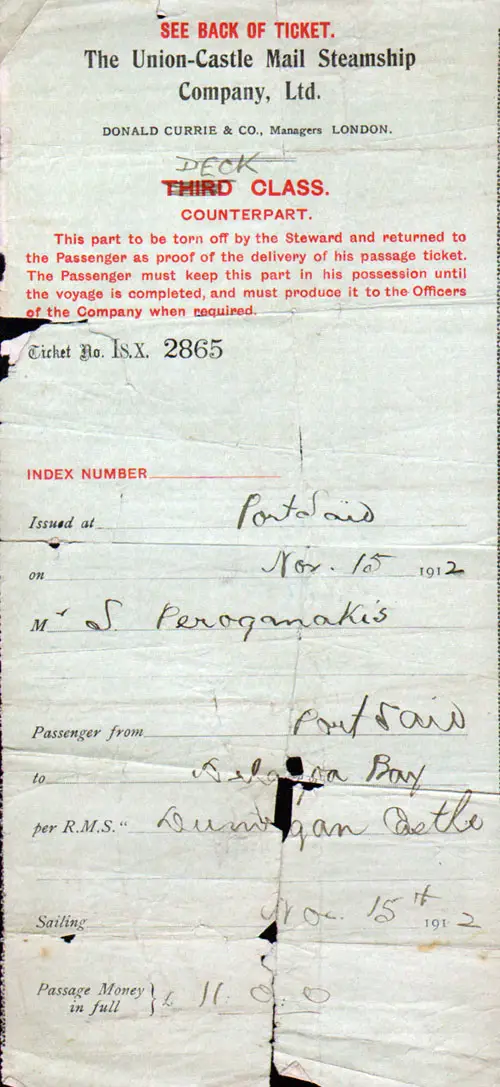 SEE BACK OF TICKET.
The Union-Castle Mail Steamship
Company, Ltd.
DONALD CURRIE & CO., Managers LONDON.
DECK
THIRD CLASS.
COUNTERPART.
This part to be torn off by the Steward and returned to
the Passenger as proof of the delivery of his passage ticket.
The Passenger must keep this part in his possession until
the voyage is completed, and must produce it to the Officers
of the Company when required.
Ticket No. IS.X. 2865
INDEX NUMBER
Issued at Port Said
on Nov. 15 1912
Mr S. Peroganakis
Passenger from Port Said
to Bay
per R.M.S. " Dunvegan Castle
Sailing Nov. 15th 1912
Passage Money
in full } £ 11. 0. 0